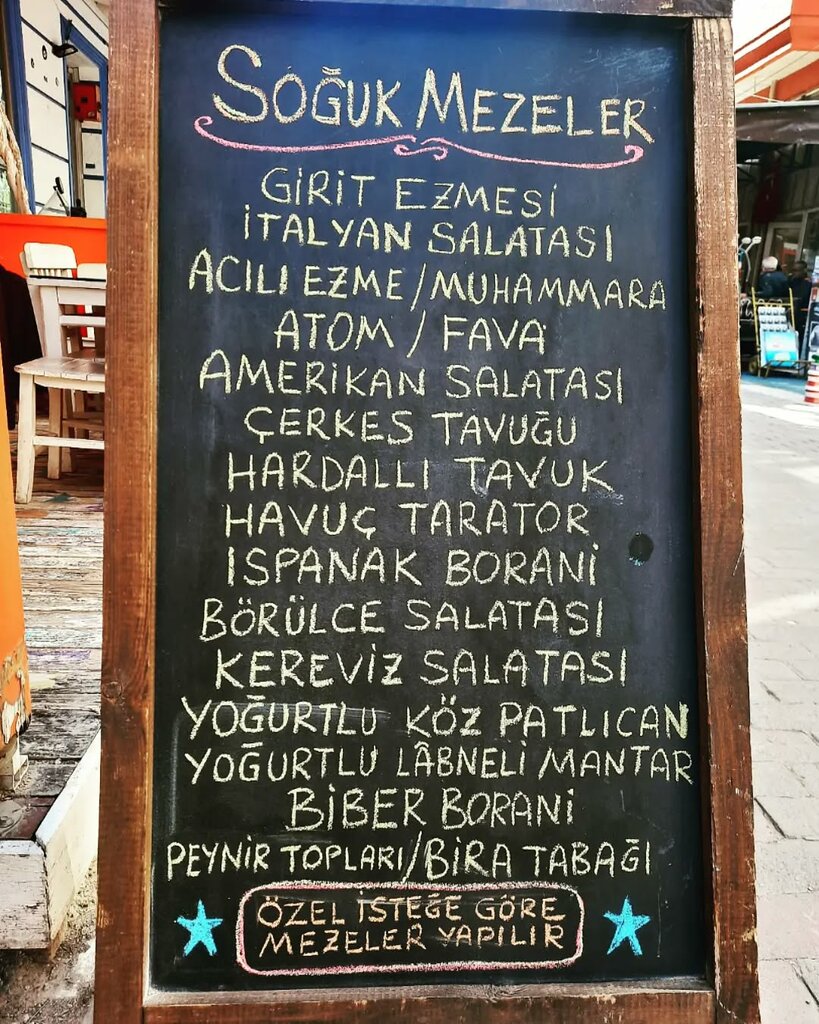 SOĞUK MEZELER
GİRİT EZMESİ
İTALYAN SALATASI
ACILI EZME/MUHAMMARA
ATOM / FAVA
AMERİKAN SALATASI
ÇERKES TAVUĞU
HARDALLI TAVUK
HAVUÇ TARATOR
ISPANAK BORANİ
BÖRÜLCE SALATASI
KEREVİZ SALATASI
YOĞURTLU KÖZ PATLICAN
YOĞURTLU LÂBNELİ MANTAR
BİBER BORANİ
PEYNİR TOPLARI/BİRA TABAĞI
ÖZEL İSTEĞE GÖRE
MEZELER YAPILIR